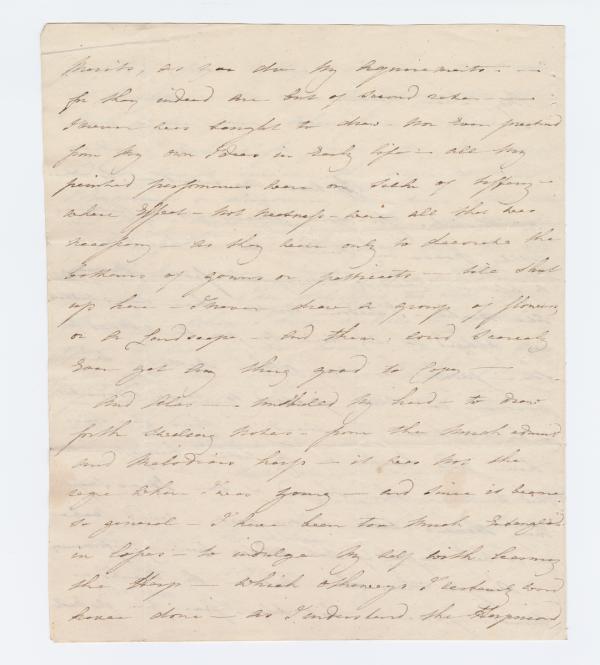 merits, as you do my Acquirements —
for they indeed are but of second rate —
I never was taught to draw nor Even practised
from my own Ideas in Early life — all my
painted performances were on silk or tiffany —
where Effect — not neatness — were all that was
necessary — as they were only to decorate the
bottoms of gowns or petticoats — till shut
up here — I never drew a group of flowers
or a Landscape — and then could scarcely
Ever get any thing good to Copy —
And Alas — unskilled my hand — to draw
forth notes — from the much admired
and Melodious harp — it was not the
when I was young — and since it became
so general — I have been too much Entangled
in — to indulge my self with learning
the Harp — which otherways I certainly would
have done — as I understand the Harpsicord,